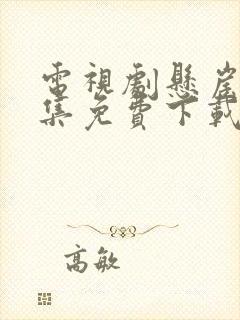 電視劇懸崖
集免費下載
高敏